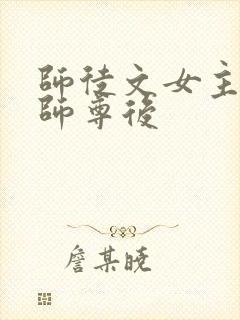 師徒文女主
師尊後
詹某曉